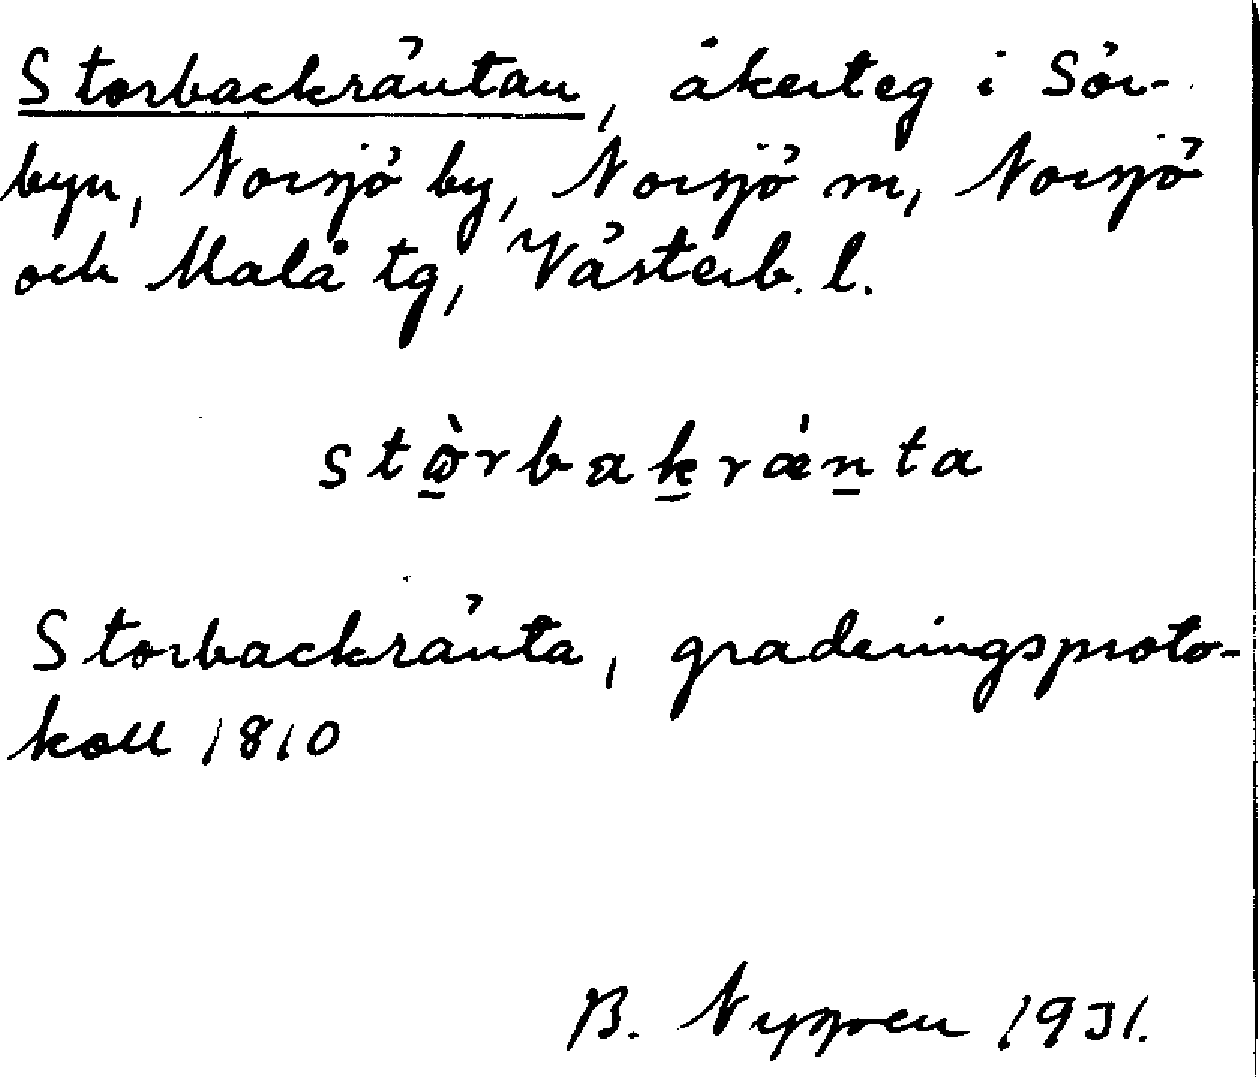 Storbackräntan, åkerteg i Sör-
byn, Norsjö by, Norsjö sn, Norsjö
och Malå tg, Västerb. l.
stǫ̀rbaḵrǽṉta
Storbackränta, graderingsproto-
koll 1810
B. Nygren 1931.